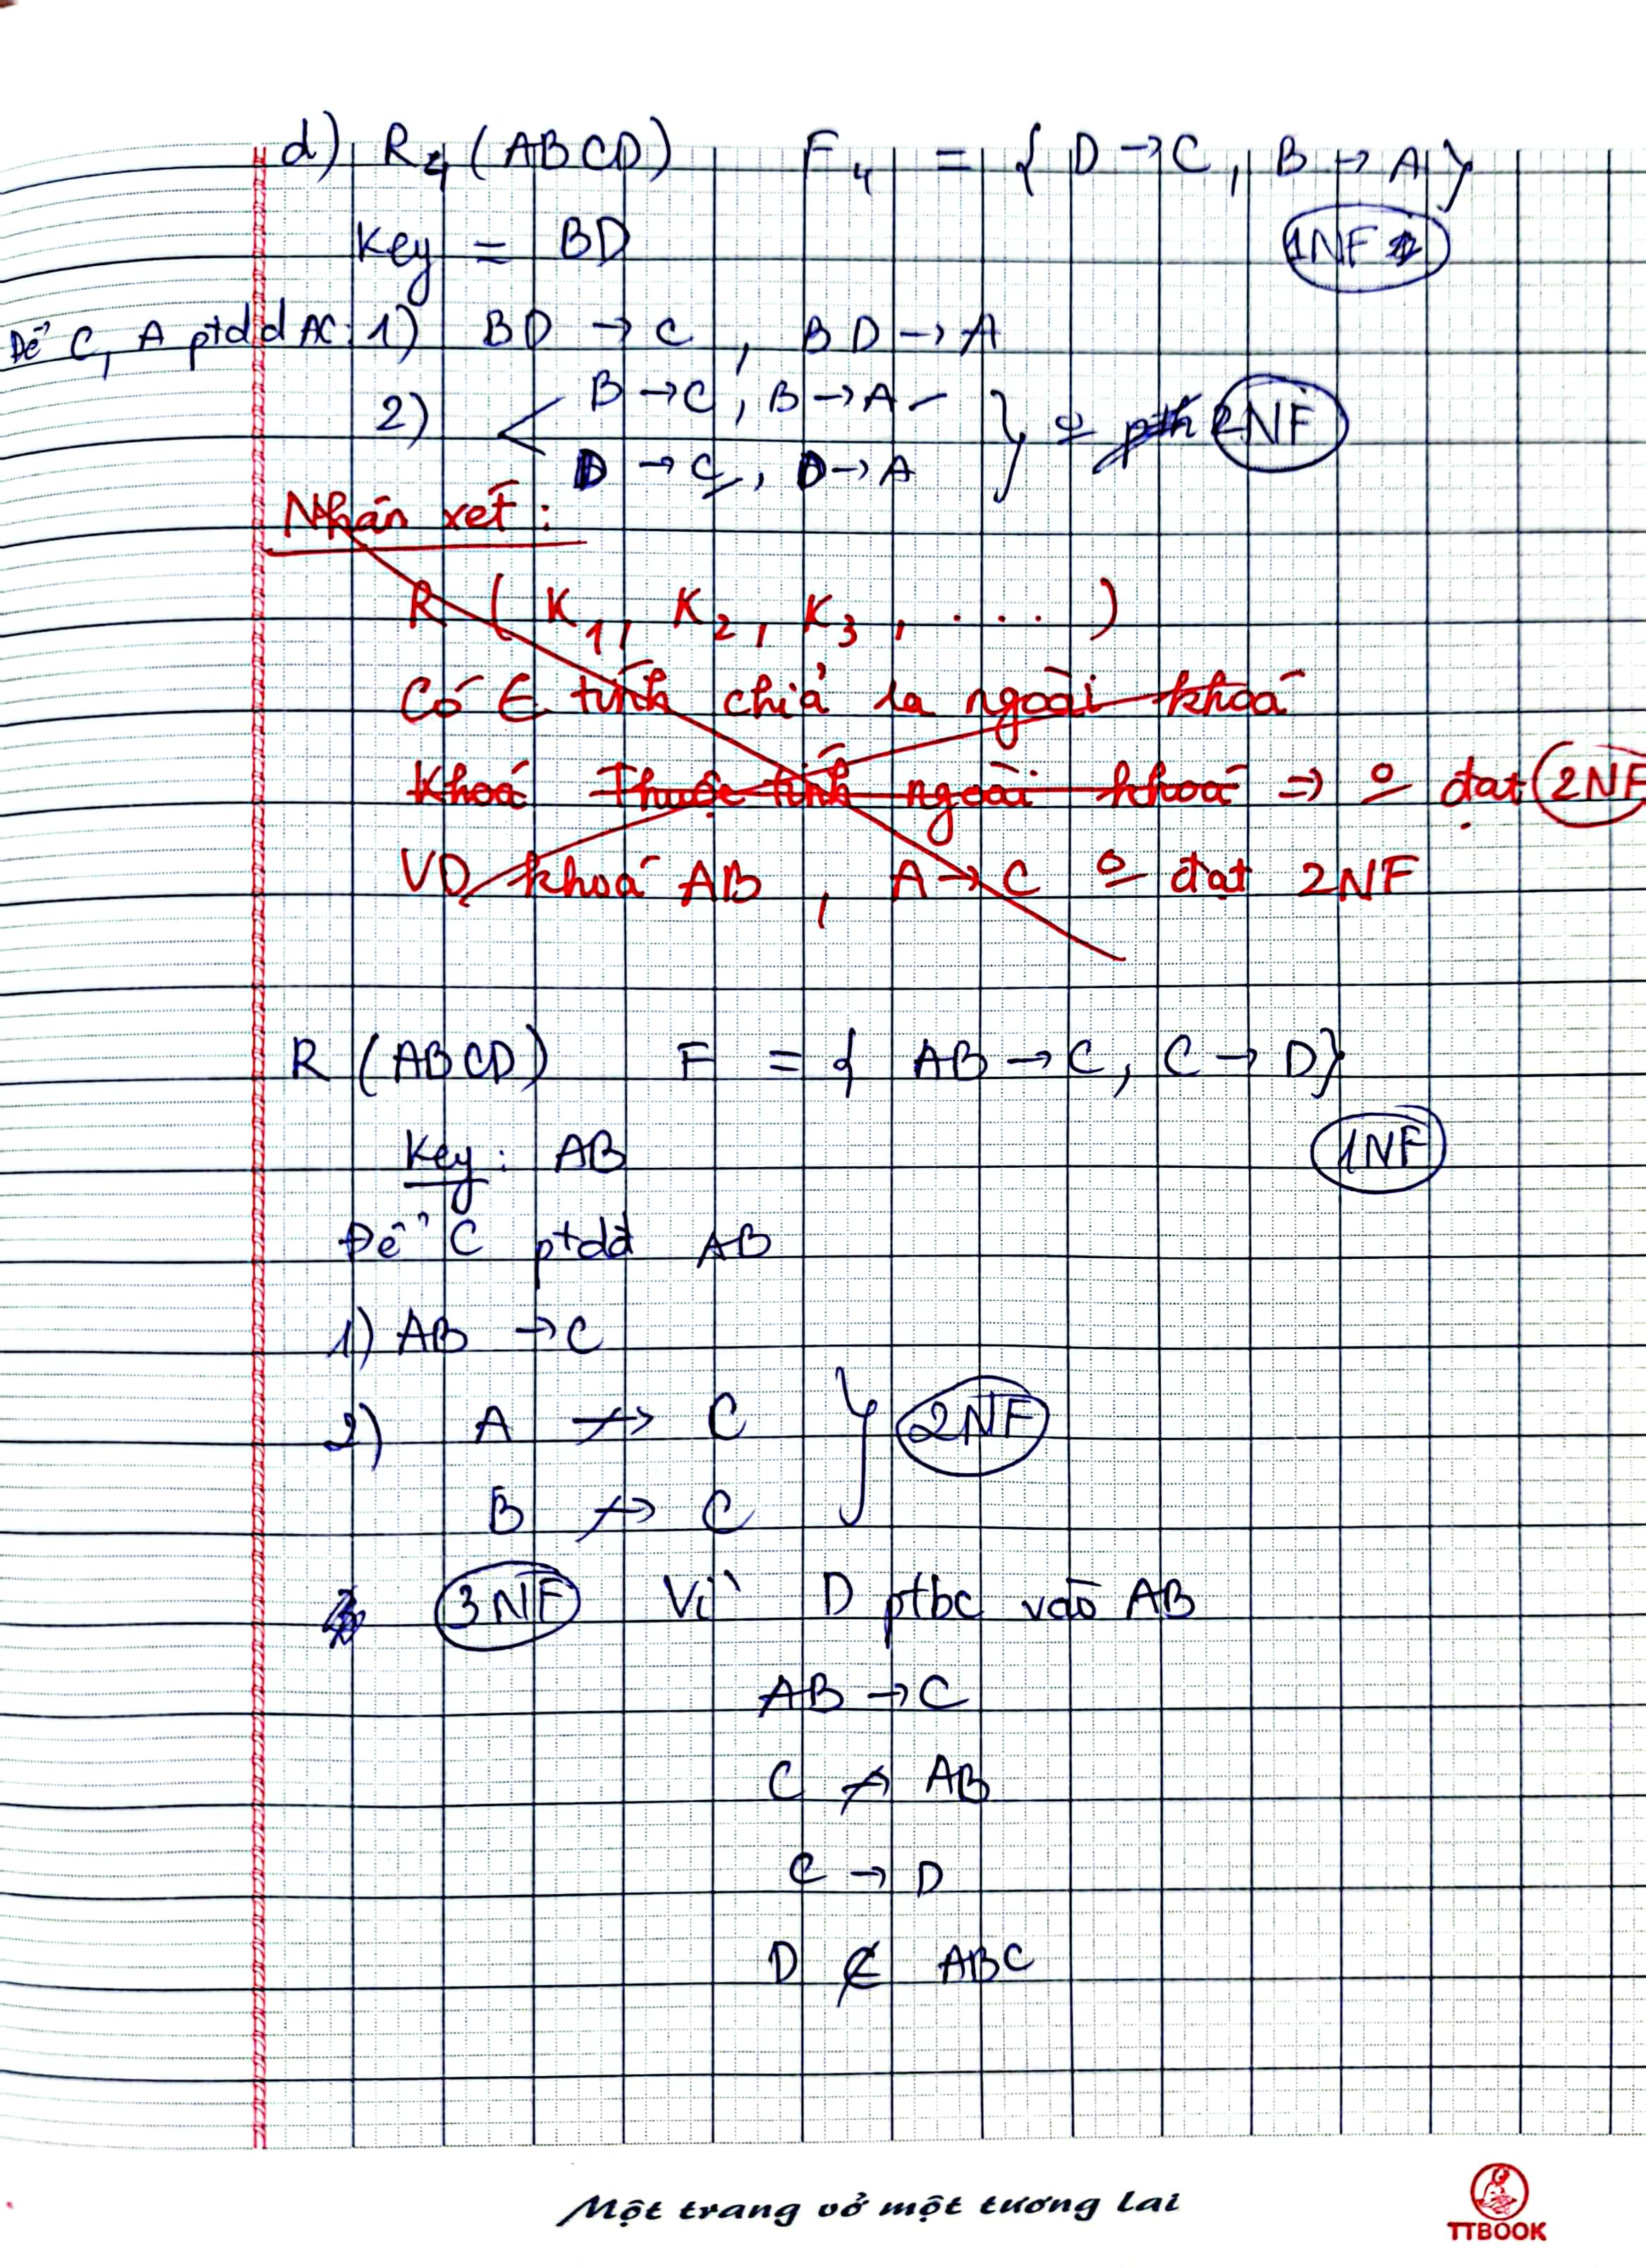 d) R₄ (ABCD) F₄ = { D → C, B → A }
Key = BD 1NF
Để C, A ptđđ AC: 1) BD → C, BD → A
2) B → C, B → A
D → C, D → A } 2NF
Nhận xét:
R ( K₁, K₂, K₃, .... )
Có E tính chia ra ngoài khoá
Khoá Thuộc tính ngoài khoá ⇒ o đạt 2NF
VD khoá AB, A → C o đạt 2NF
R (ABCD) F = { AB → C, C → D}
Key: AB 1NF
Để C ptđđ AB
1) AB → C
2) A ↛ C } 2NF
B ↛ C
3NF Vì D ptbc vào AB
AB → C
C ↛ AB
C → D
D ∉ ABC
Một trang vở một tương lai
TTBOOK